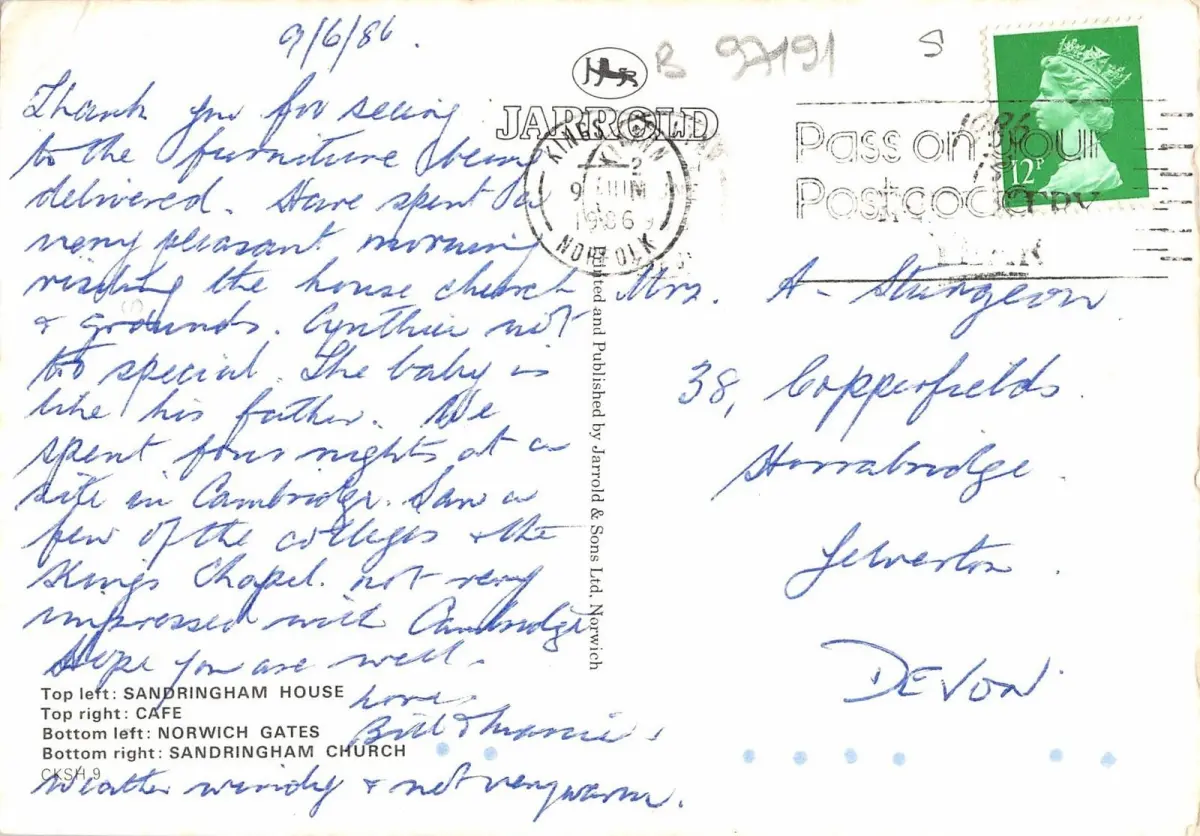 9/6/86.
Thank you for seeing
to the furniture being
delivered. Have spent a
very pleasant morning
visiting the house church
& grounds. Cynthia not
too special. The baby is
like his father. We
spent four nights at a
site in Cambridge. Saw a
few of the colleges & the
Kings Chapel. not very
impressed with Cambridge
Hope you are well.
Love
Bill &
Weather windy & not very warm.
Top left: SANDRINGHAM HOUSE
Top right: CAFE
Bottom left: NORWICH GATES
Bottom right: SANDRINGHAM CHURCH
CKSH 9
JARROLD
Printed and Published by Jarrold & Sons Ltd. Norwich
B 97191
S
KINGS LYNN
9 JUN
1986
NORFOLK
Pass on your
Postcode
12P
Mrs. A. Sturgeon
38, Copperfields.
Horrabridge.
Yelverton.
DEVON.